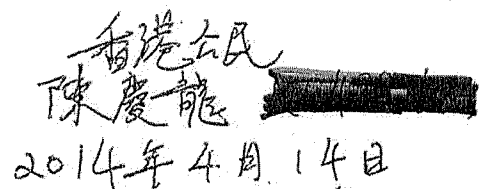 香港公民
陳慶龍
2014年4月14日